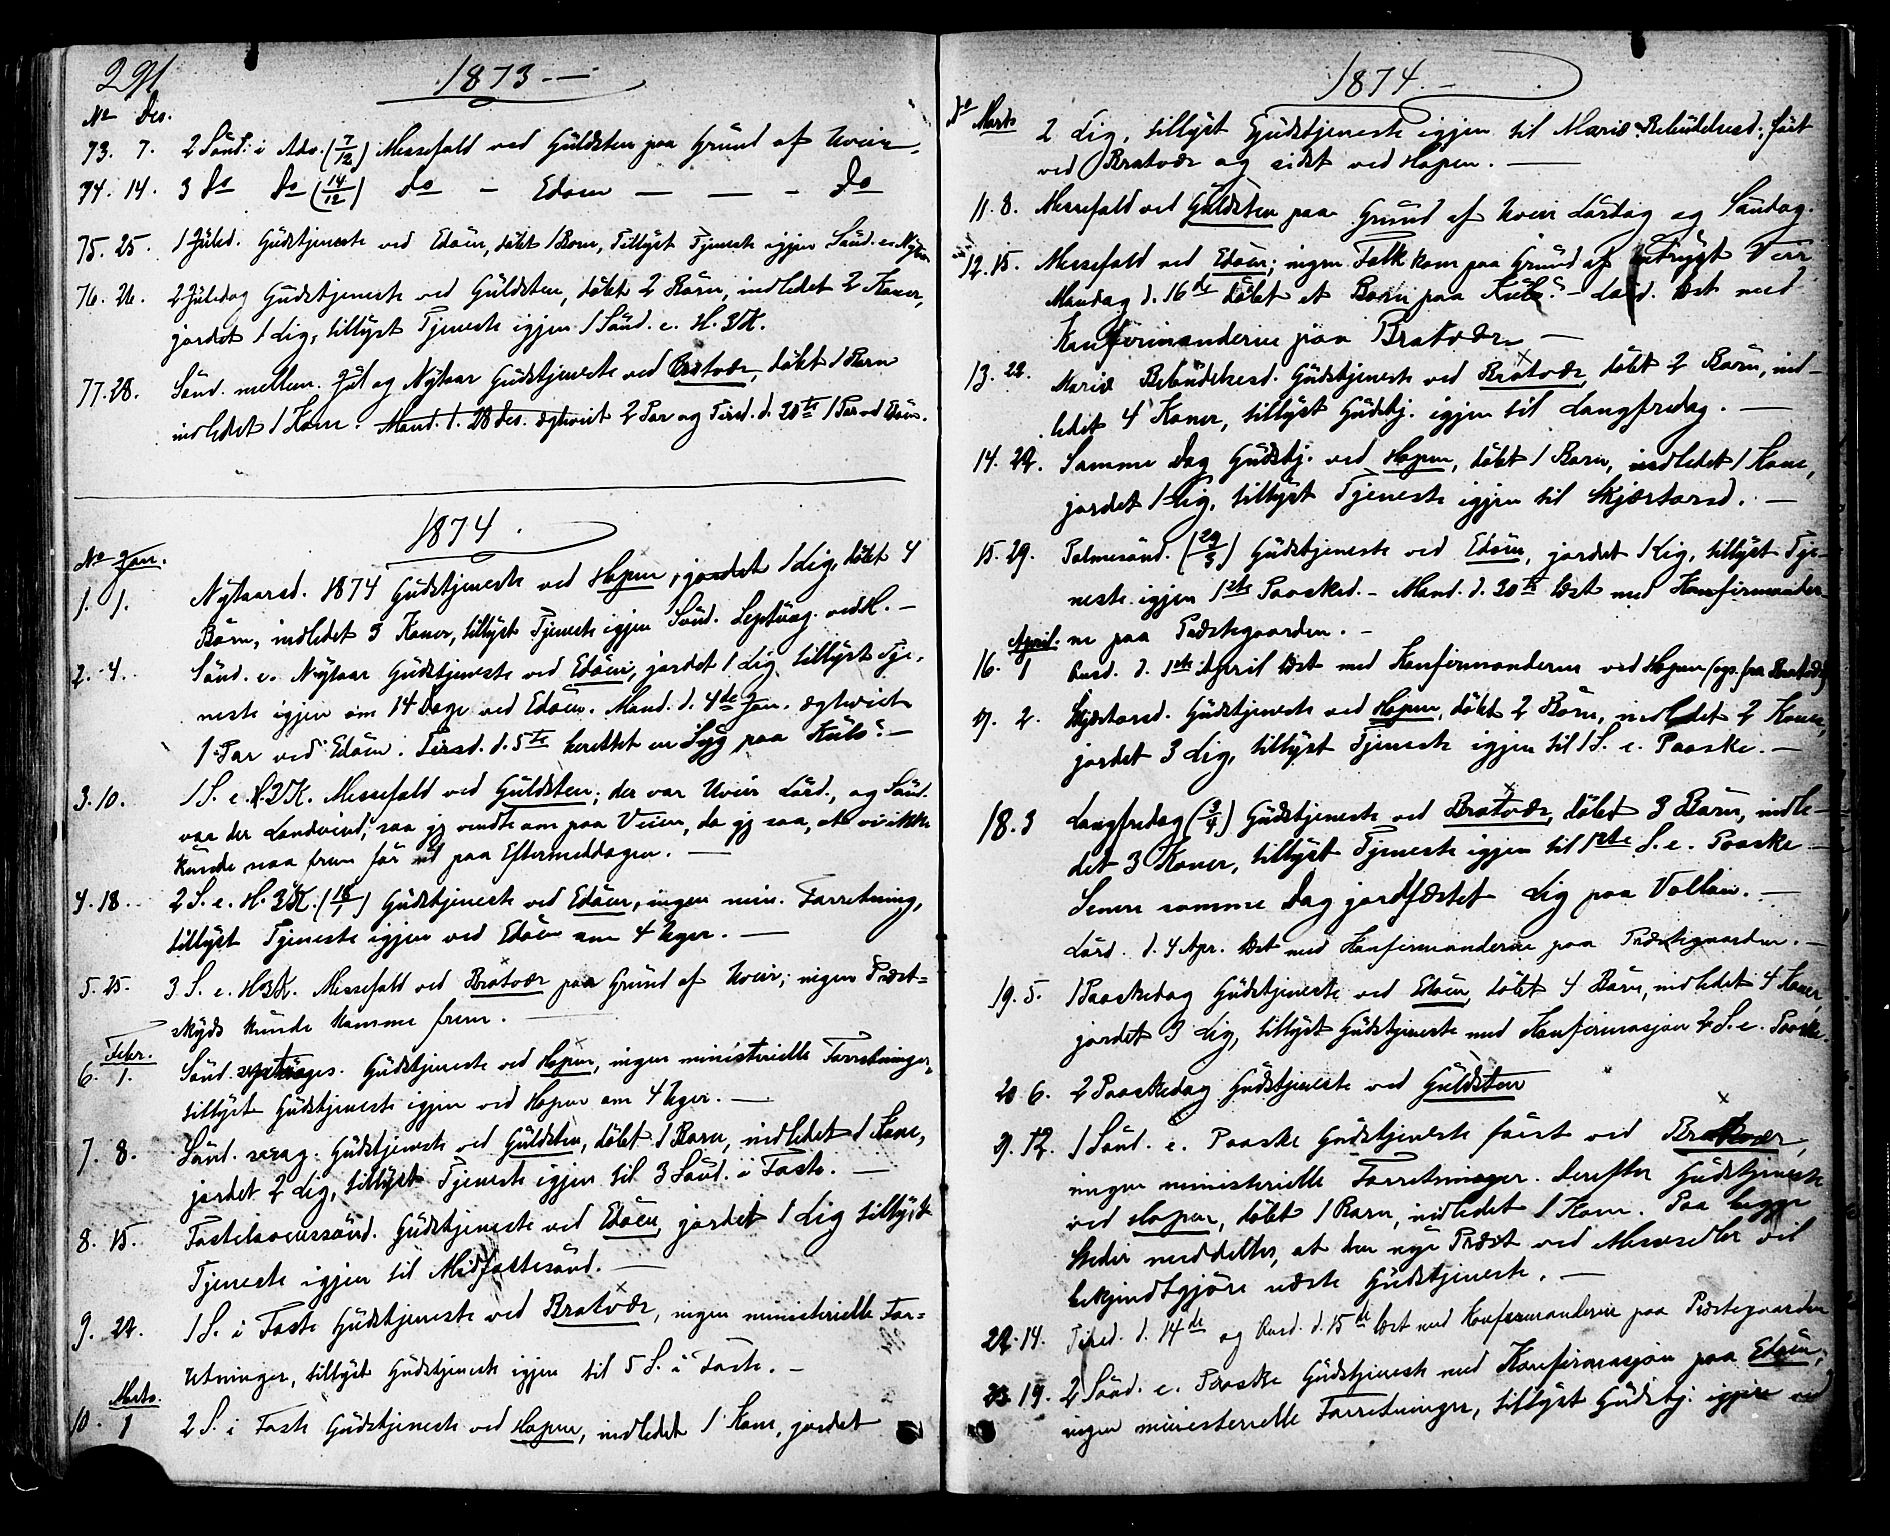 291
1873 —
No Des.
73. 7. 2 Sönd. i Adv. (7/12) Messefald ved Güldsten paa Grund af Uveir.
74. 14. 3 do do (14/12) do — Edöen — — — do
75. 25. 1 Juled. Gudstjeneste ved Edöen, döbt 1 Barn, Tillyst Tjeneste igjen Sönd. e. Nytaar
76. 26. 2 Juledag Gudstjeneste ved Güldsten, döbt 2 Börn, indledet 2 Koner,
jordet 1 Lig, tillyst Tjeneste igjen 1 Sönd. e. H. 3 K.
77. 28. Sönd. mellem Jul og Nytaar Gudstjeneste ved Bratvær, döbt 1 Barn
indledet 1 Kone. Mand. d. 28 Des. ægteviet 2 Par og Tirsd. d. 30te 1 Par ved Edöen.
1874.
No Jan.
1. 1. Nytaarsd. 1874 Gudstjeneste ved Hopen, jordet 1 Lig, döbt 4
Börn, indledet 3 Koner, tillyst Tjeneste igjen Sönd. Septuag. ved H. —
2. 4. Sönd. e. Nytaar Gudstjeneste ved Edöen, jordet 1 Lig, tillyst Tje-
neste igjen om 14 Dage ved Edöen. Mand. d. 4de Jan. ægteviet
1 Par ved Edöen. Tirsd. d. 5te berettet en Syg paa Kulö. —
3. 10. 1 S. e. H. 3 K. Messefald ved Güldsten; der var Uveir Lörd., og Sönd.
var der Landvind, saa jeg vendte om paa Veien, da jeg saa, at vi ikke
kunde naa frem för ud paa Eftermeddagen. —
4. 18. 2 S. e. H. 3 K. (18/1) Gudstjeneste ved Edöen, ingen min. Forretning,
tillyst Tjeneste igjen ved Edöen om 4 Uger. —
5. 25. 3 S. e. H 3 K. Messefald ved Bratvær paa Grund af Uveir; ingen Præst-
skyds kunde komme frem. —
Febr.
6. 1. Sönd. septuages. Gudstjeneste ved Hopen, ingen ministerielle Forretninger,
tillyst Gudstjeneste igjen ved Hopen om 4 Uger. —
7. 8. Sönd. sexag. Gudstjeneste ved Güldsten, döbt 1 Barn, indledet 1 Kone,
jordet 2 Lig, tillyst Tjeneste igjen til 3 Sönd. i Faste. —
8. 15. Fastelavenssönd. Gudstjeneste ved Edöen, jordet 1 Lig tillyst
Tjeneste igjen til Midfastesönd. —
9. 22. 1 S. i Faste Gudstjeneste ved Bratvær, ingen ministerielle For-
retninger, tillyst Gudstjeneste igjen til 5 S. i Faste. —
Marts.
10. 1 2 S. i Faste Gudstjeneste ved Hopen, indledet 1 Kone, jordet
1874. —
No Marts
2 Lig, tillyst Gudstjeneste igjen til Mariæ Bebudelsesd., först
ved Bratvær og sidst ved Hopen. —
11. 8. Messefald ved Güldsten paa Grund af Uveir Lördag og Söndag.
12. 15. Messefald ved Edöen; ingen Folk kom paa Grund af utrygt Veir
Mandag d. 16de döbt et Barn paa Kulö. — læst med
Konfirmanderne paa Bratvær —
13. 22. Mariæ Bebudelsesd. Gudstjeneste ved Bratvær, döbt 2 Börn, ind-
ledet 4 Koner, tillyst Gudstj. igjen til Langfredag. —
14. 22. Samme Dag Gudstj. ved Hopen, döbt 1 Barn, indledet 1 Kone,
jordet 1 Lig, tillyst Tjeneste igjen til Skjærtorsd. —
15. 29. Palmesönd. (29/3) Gudstjeneste ved Edöen, jordet 1 Lig, tillyst Tje-
neste igjen 1ste Paasked. — Mand. d. 30te læst med Konfirmander-
ne paa Præstegaarden. —
April.
16. 1 Onsd. d. 1ste April læst med Konfirmanderne ved Hopen (ogs. fra Bratvær)
17. 2. Skjærtorsd. Gudstjeneste ved Hopen, döbt 2 Börn, indledet 2 Koner,
jordet 3 Lig, tillyst Tjeneste igjen til 1 S. e. Paaske. —
18. 3 Langfredag (3/4) Gudstjeneste ved Bratvær, döbt 3 Börn, indle-
det 3 Koner, tillyst Tjeneste igjen til 1ste S. e. Paaske —
Senere samme Dag jordfæstet Lig paa Vollan. —
Lörd. d. 4 Apr. læst med Konfirmanderne paa Præstegaarden. —
19. 5. 1 Paaskedag Gudstjeneste ved Edöen, döbt 4 Börn, indledet 4 Koner,
jordet 3 Lig, tillyst Gudstjeneste med Konfirmasjon 2 S. e. Paaske.
20 6. 2 Paaskedag Gudstjeneste ved Güldsten
21. 12. 1 Sönd. e. Paaske Gudstjeneste först ved Bratvær,
ingen ministerielle Forretninger. Derefter Gudstjeneste
ved Hopen, döbt 1 Barn, indledet 1 Kone. Paa begge
Steder meddeltes, at den nye Præst ved Messesedler vil
bekjendtgjöre næste Gudstjeneste. —
22. 14. Tirsd. d. 14de og Onsd. d. 15de læst med Konfirmanderne paa Præstegaarden
23. 19. 2 Sönd. e. Paaske Gudstjeneste med Konfirmasjon paa Edöen;
ingen ministerielle Forretninger, tillyst Gudstj. igjen ved